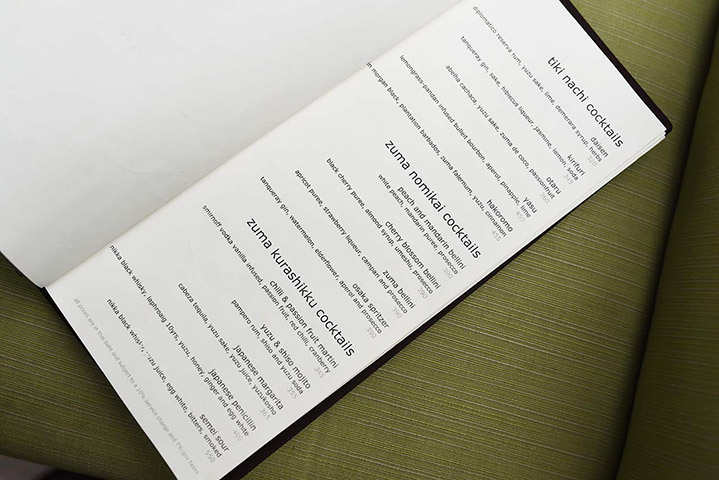 tiki nachi cocktails
daisen
diplomatico reserva rum, yuzu sake, lime, demerara syrup, herbs
320
kirifuri
tanqueray gin, sake, hibiscus liqueur, jasmine, lemon, soda
345
otaru
abelha cachaca, yuzu sake, zuma de coco, passionfruit
360
yasu
lemongrass-pandan infused bulleit bourbon, aperol, pineapple, lime
455
hakoromo
n morgan black, plantation barbados, zuma falernum, yuzu, cinnamon
455
zuma nomikai cocktails
peach and mandarin bellini
white peach, mandarin puree, prosecco
390
cherry blossom bellini
black cherry puree, almond syrup, umeshu, prosecco
390
zuma bellini
apricot puree, strawberry liqueur, campari and prosecco
390
osaka spritzer
tanqueray gin, watermelon, elderflower, aperol and prosecco
390
zuma kurashikku cocktails
chilli & passion fruit martini
smirnoff vodka vanilla infused, passion fruit, red chilli, cranberry
345
yuzu & shiso mojito
pampero rum, shiso and yuzu soda
355
japanese margarita
cabeza tequila, yuzu sake, yuzu juice, yuzukosho
365
japanese penicillin
nikka black whisky, laphroaig 10yrs, yuzu, honey, ginger and egg white
400
semei sour
nikka black whisky, yuzu juice, egg white, bitters, smoked
550
all prices are in thai baht and subject to a 10% service charge and 7% gov taxes